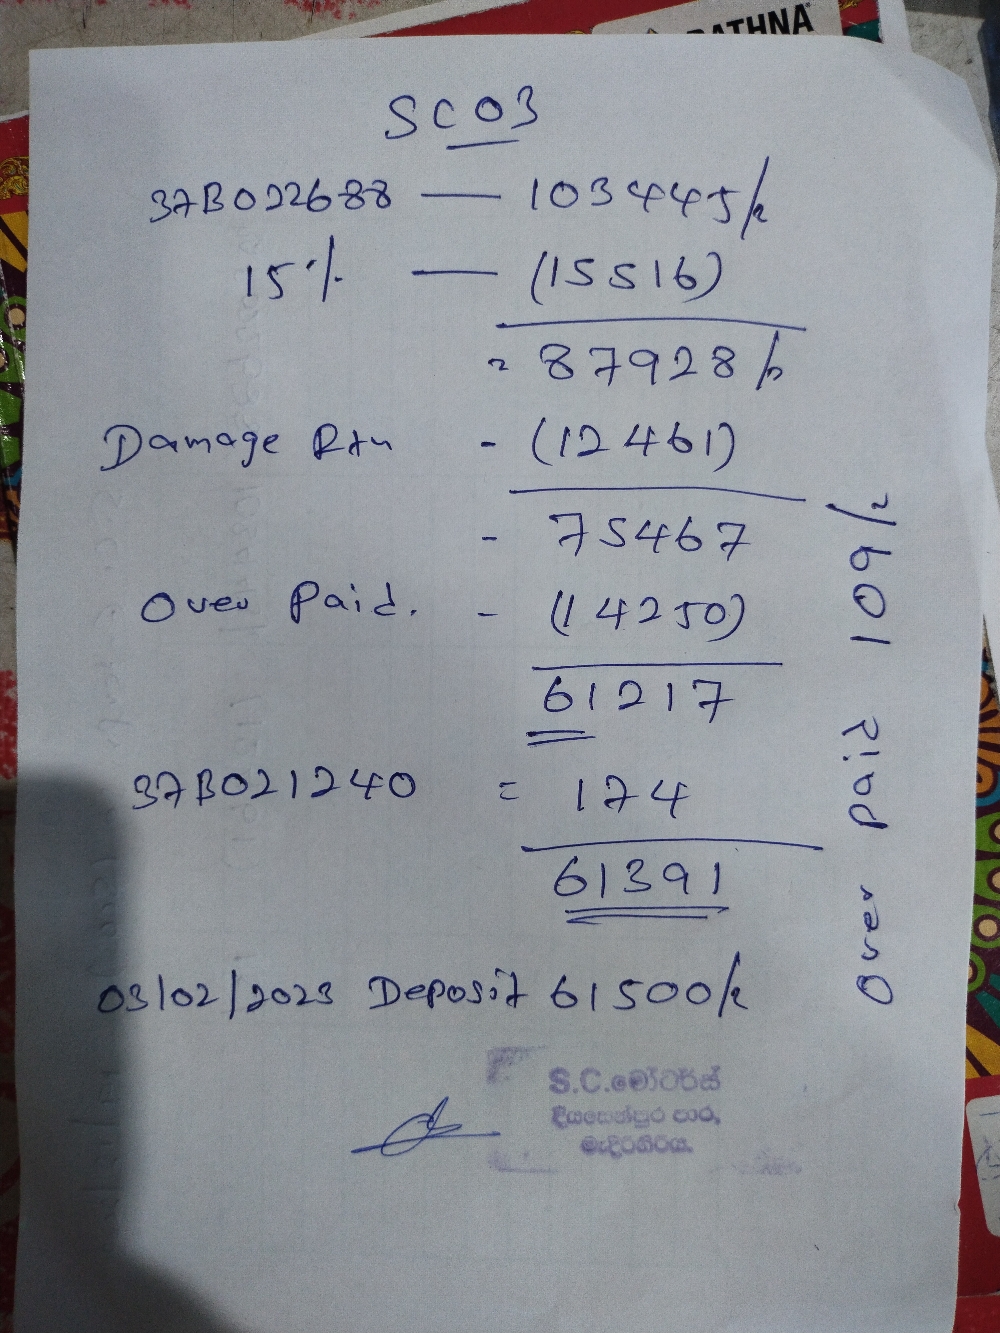 RATHNA
SC03
37B022688 — 103445/-
15% — (15516)
= 87928/-
Damage Rtn - (12461)
- 75467
Over Paid. - (14250)
61217
37B021240 = 174
61391
03/02/2023 Deposit 61500/-
Over paid 109/-
S.C.මෝටර්ස්
දියසෙන්පුර පාර,
මැදිරිගිරිය.